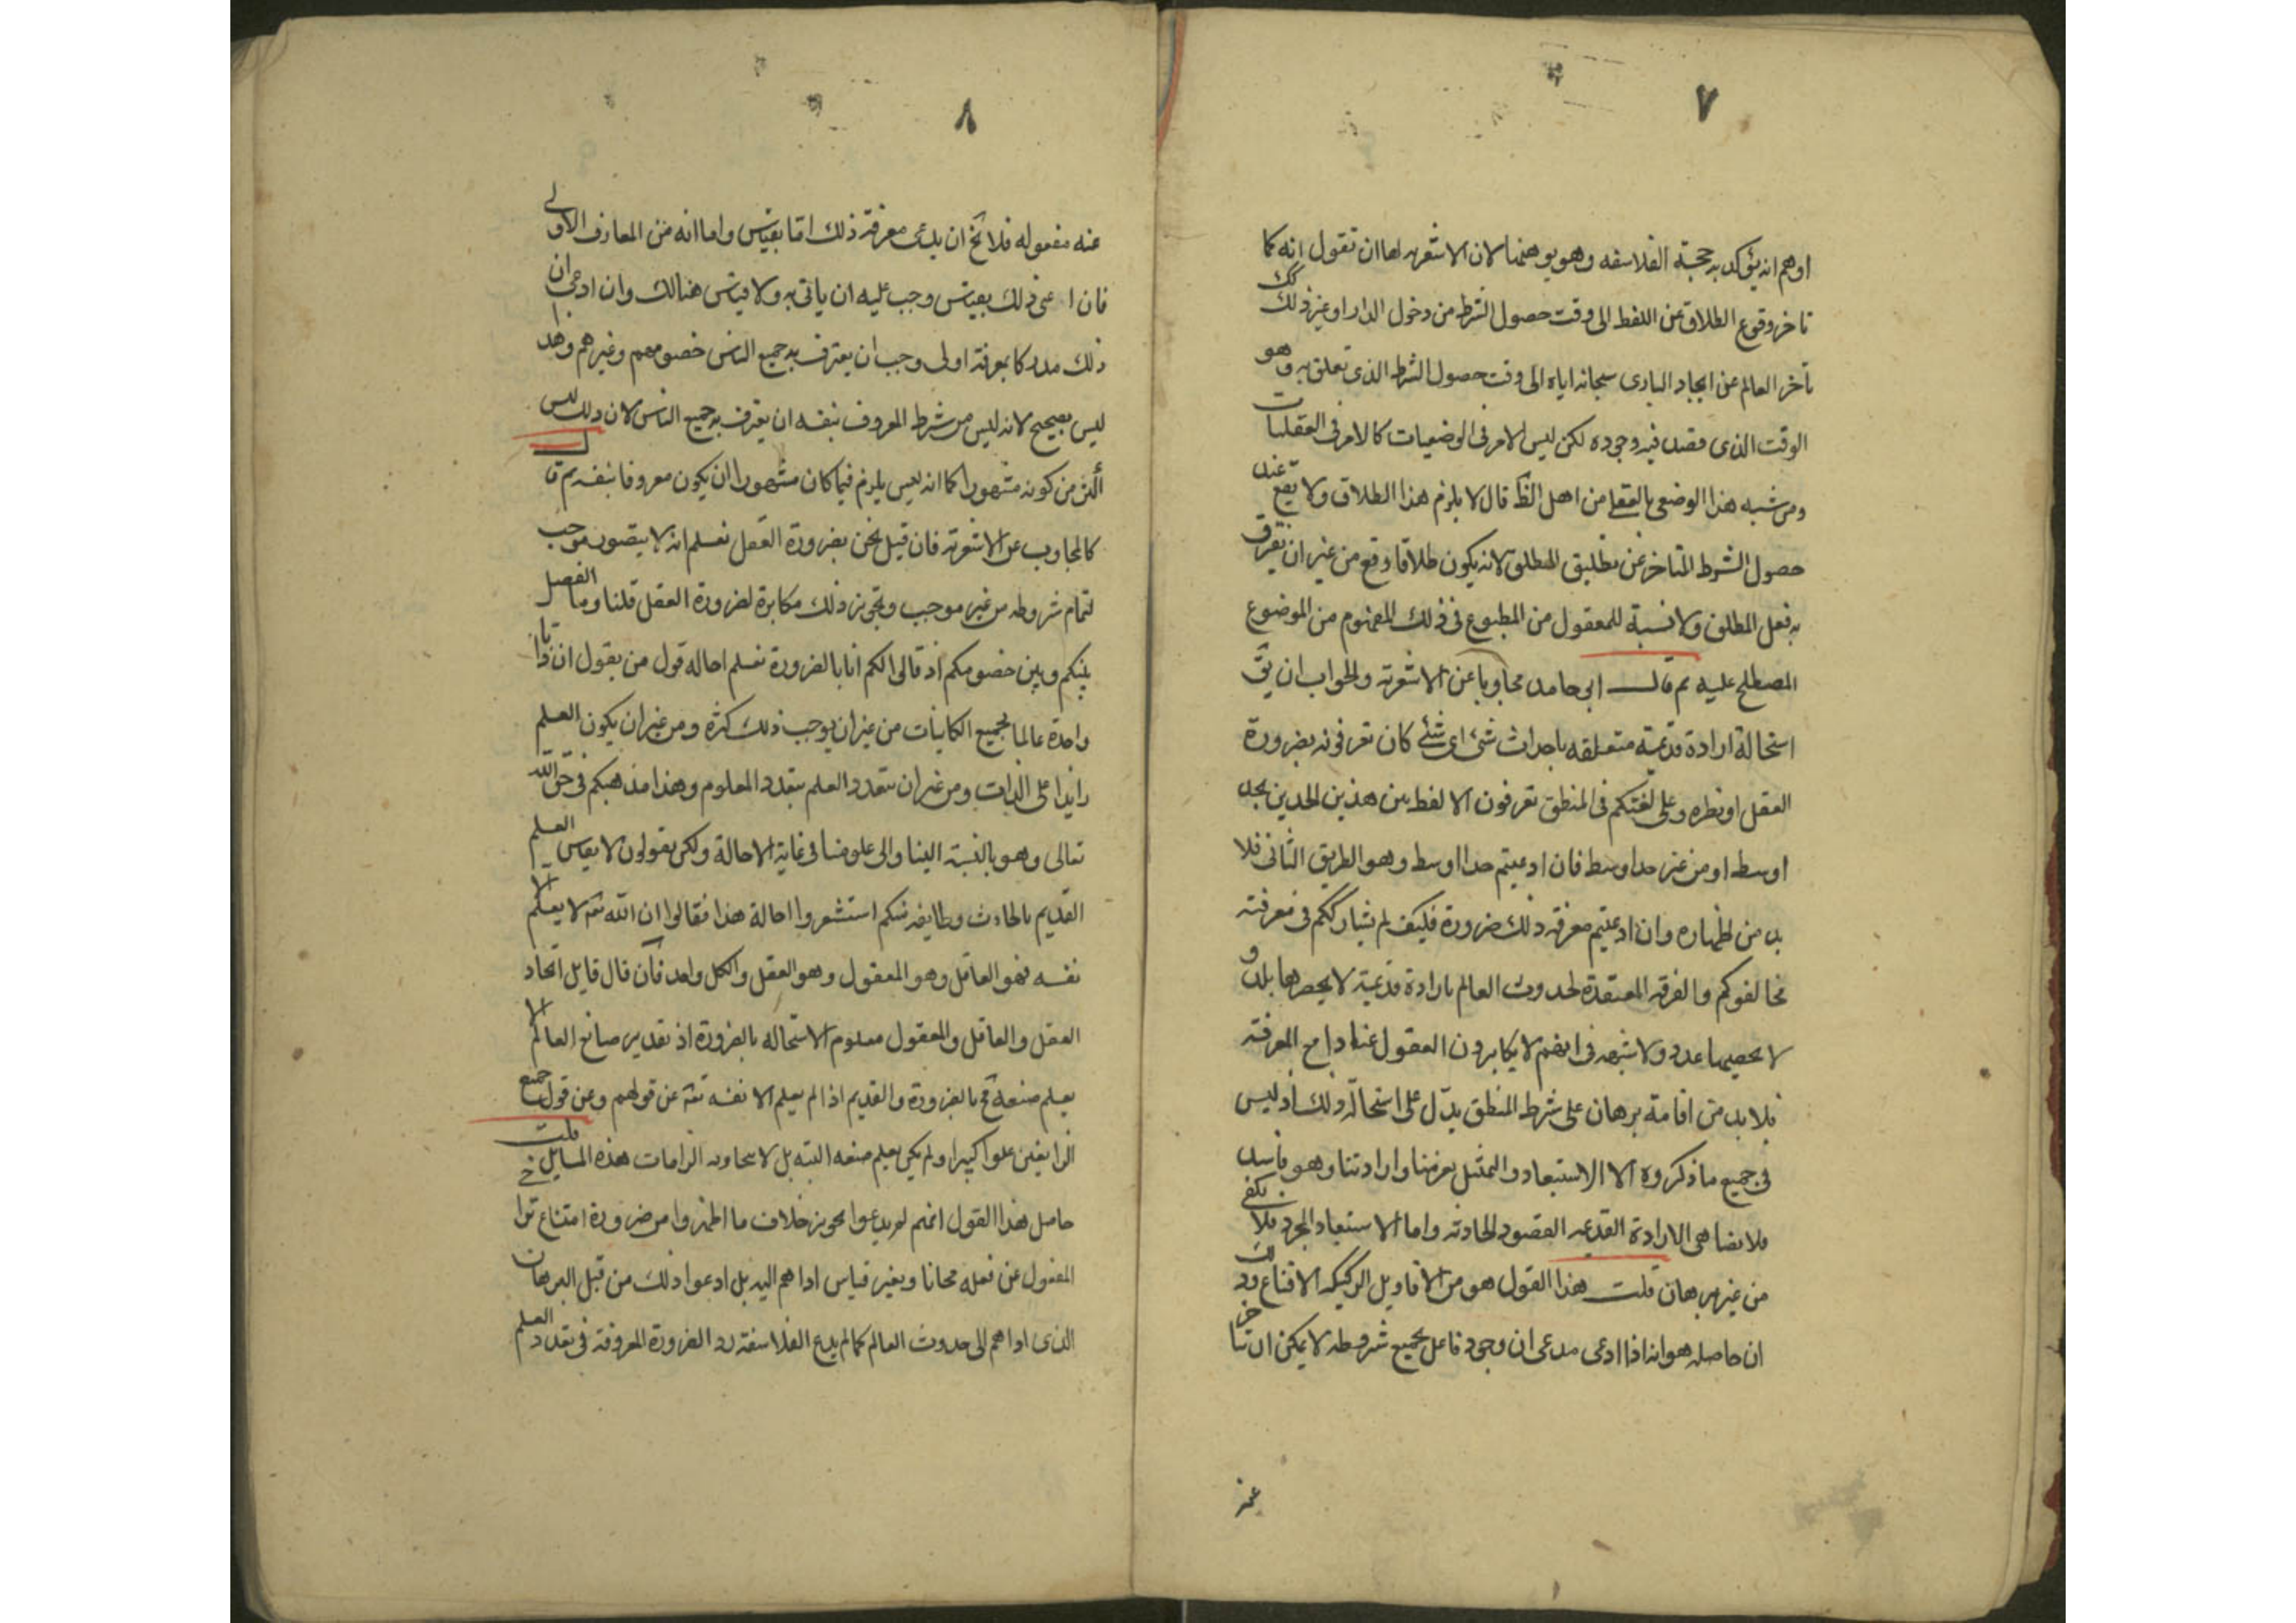 ٧
اوهم انه يؤكد به حجة الفلاسفه وهو يوهنها لان الاشعريه لها ان تقول انه كما
تاخر وقوع الطلاق عن اللفظ الى وقت حصول الشرط من دخول الدار او غير ذلك كك
تأخر العالم عن ايجاد البارى سبحانه اياه الى وقت حصول الشرط الذى تعلق به وهو
الوقت الذى قصد فيه وجوده لكن ليس الامر فى الوضعيات كالامر فى العقليات
ومن شبه هذا الوضعى بالعقلى من اهل الظ قال لا يلزم هذا الطلاق ولا يقع عند
حصول الشرط المتاخر عن تطليق المطلق لانه يكون طلاقا وقع من غير ان يقترن
به فعل المطلق ولا نسبة للمعقول من المطبوع فى ذلك المفهوم من الموضوع
المصطلح عليه ثم قال ابى حامد مجاوبا عن الاشعريه والجواب ان يق
استحالة ارادة قديمة متعلقه باحداث شئ اى شئ كان تعرفونه بضرورة
العقل او نظره وعلى لغتكم فى المنطق تعرفون الا لفظ بين هذين الحدين بحد
اوسط او من غير حد اوسط فان ادعيتم حدا اوسط وهو الطريق الثانى فلا
بد من اظهاره وان ادعيتم معرفه ذلك ضرورة فكيف لم يشارككم فى معرفته
مخالفوكم والفرقه المعتقدة لحدوث العالم بارادة قديمية لا يحصرها بلد و
لا يحصيها عدد ولا شبهه فى انهم لا يكابرون العقول عنادا مع المعرفة
فلا بد من اقامة برهان على شرط المنطق يدل على استحالة ذلك اذ ليس
فى جميع ما ذكروه الا الاستبعاد والتمثيل بعزمنا وارادتنا وهو فاسد
فلا تضاهى الارادة القديمه القصود الحادثه واما الاستبعاد المجرد فلا يكفى
من غير برهان قلت هذا القول هو من الاقاويل الركيكه الاقناع وذلك
ان حاصله هو انه اذا ادعى مدعى ان وجود فاعل بجميع شروطه لا يمكن ان يتاخر
عنه
٨
عنه مفعوله فلا يخ ان يدعى معرفة ذلك اما بقياس واما انه من المعارف الاولى
فان ادعى ذلك بقياس وجب عليه ان ياتى به ولا قياس هنالك وان ادعى ان
ذلك مدركا بمعرفة اولى وجب ان يعترف به جميع الناس خصومهم وغيرهم وهذا
ليس بصحيح لانه ليس من شرط المعروف بنفسه ان يعترف به جميع الناس لان ذلك ليس
اكثر من كونه مشهورا كما انه ليس يلزم فيما كان مشهورا ان يكون معروفا بنفسه ثم قال
كالمجاوب عن الاشعريه فان قيل نحن بضرورة العقل نعلم انه لا يتصور موجب
لتمام شروطه من غير موجب وتجويز ذلك مكابرة لضرورة العقل قلنا وما الفصل
بينكم وبين خصومكم اذ قالوا لكم انا بالضرورة نعلم احاله قول من يقول ان ذاتا
واحدة عالما بجميع الكاينات من غير ان يوجب ذلك كثره ومن غير ان يكون العلم
زايدا على الذات ومن غير ان يتعدد العلم بتعدد المعلوم وهذا مذهبكم فى حق الله
تعالى وهو بالنسبة الينا والى علومنا فى غاية الاحالة ولكن يقولون لا يقاس العلم
القديم بالحادث وطايفه منكم استشعروا احالة هذا فقالوا ان الله تعه لا يعلم الا
نفسه فهو العاقل وهو المعقول وهو العقل والكل واحد فان قال قايل اتحاد
العقل والعاقل والمعقول معلوم الاستحاله بالضرورة اذ تقدير صانع العالم لا
يعلم صنعه مح بالضرورة والقديم اذا لم يعلم الا نفسه تعه عن قولهم وعن قول جميع
الزايغين علوا كبيرا ولم يكن يعلم صنعه البته بل لا يتجاوز الزامات هذه المسايل قلت
حاصل هذا القول انهم لم يدعوا تجويز خلاف ما اظهروا من ضرورة امتناع تراخى
المفعول عن فعله مجانا وبغير قياس اداهم اليه بل ادعوا ذلك من قبل البرهان
الذى اداهم الى حدوث العالم كما لم يدع الفلاسفة رد الضرورة المعروفة فى تعدد العلم